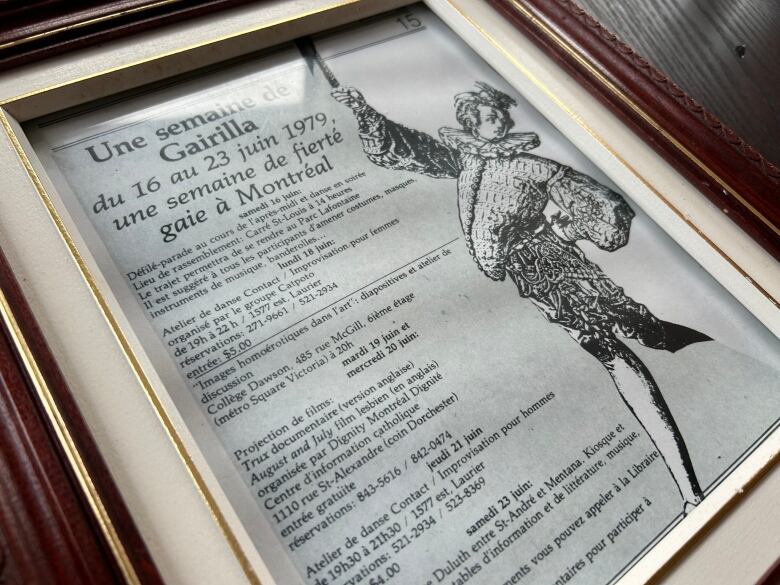 15
Une semaine de
Gairilla
du 16 au 23 juin 1979,
une semaine de fierté
gaie à Montréal
samedi 16 juin:
Défilé-parade au cours de l'après-midi et danse en soirée
Lieu de rassemblement: Carré St-Louis à 14 heures
Le trajet permettra de se rendre au Parc Lafontaine
Il est suggéré à tous les participants d'amener costumes, masques,
instruments de musique, banderoles...
lundi 18 juin:
Atelier de danse Contact / Improvisation pour femmes
organisé par le groupe Calpoto
de 19h à 22 h / 1577 est, Laurier
réservations: 271-9661 / 521-2934
entrée: $5.00
"Images homoérotiques dans l'art": diapositives et atelier de
discussion
Collège Dawson, 485 rue McGill, 6ième étage
(métro Square Victoria) à 20h
mardi 19 juin et
mercredi 20 juin:
Projection de films:
Trux documentaire (version anglaise)
August and July film lesbien (en anglais)
organisée par Dignity Montréal Dignité
Centre d'information catholique
1110 rue St-Alexandre (coin Dorchester)
entrée gratuite
réservations: 843-5616 / 842-0474
jeudi 21 juin
Atelier de danse Contact / Improvisation pour hommes
de 19h30 à 21h30 / 1577 est, Laurier
réservations: 521-2934 / 523-8369
$4.00
samedi 23 juin:
Duluth entre St-André et Mentana. Kiosque et
tables d'information et de littérature, musique,
vous pouvez appeler à la Librairie
pour participer à